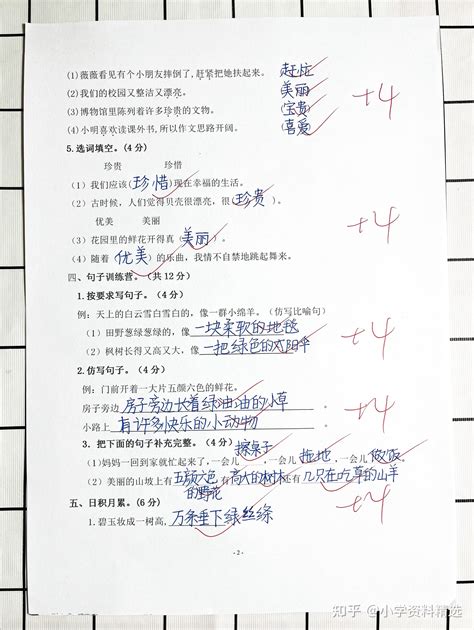 (1)薇薇看见有个小朋友摔倒了,赶紧把她扶起来。 赶忙
(2)我们的校园又整洁又漂亮。 美丽
(3)博物馆里陈列着许多珍贵的文物。 (宝贵)
(4)小明喜欢读课外书,所以作文思路开阔。 (喜爱)
+4
5.选词填空。(4分)
珍贵 珍惜
(1)我们应该(珍惜)现在幸福的生活。
(2)古时候,人们觉得贝壳很漂亮,很(珍贵)。
优美 美丽
+4
(3)花园里的鲜花开得真(美丽)。
(4)随着(优美)的乐曲,我情不自禁地跳起舞来。
四、句子训练营。(共12分)
1.按要求写句子。(4分)
例:天上的白云雪白雪白的,像一群小绵羊。(仿写比喻句)
(1)田野葱绿葱绿的,像一块柔软的地毯
+4
(2)枫树长得又高又大,像一把绿色的太阳伞
2.仿写句子。(4分)
例:门前开着一大片五颜六色的鲜花。
房子旁边房子旁边长着绿油油的小草。
+4
小路上有许多快乐的小动物。
3.把下面的句子补充完整。(4分)
(1)妈妈一回到家就忙起来了,一会儿擦桌子,一会儿拖地,一会儿做饭。
(2)美丽的山坡上有五颜六色的野花,有高大的树林,还有几只在吃草的山羊
+4
五、日积月累。(6分)
1.碧玉妆成一树高,万条垂下绿丝绦
-2-
知乎 @小学资料精选